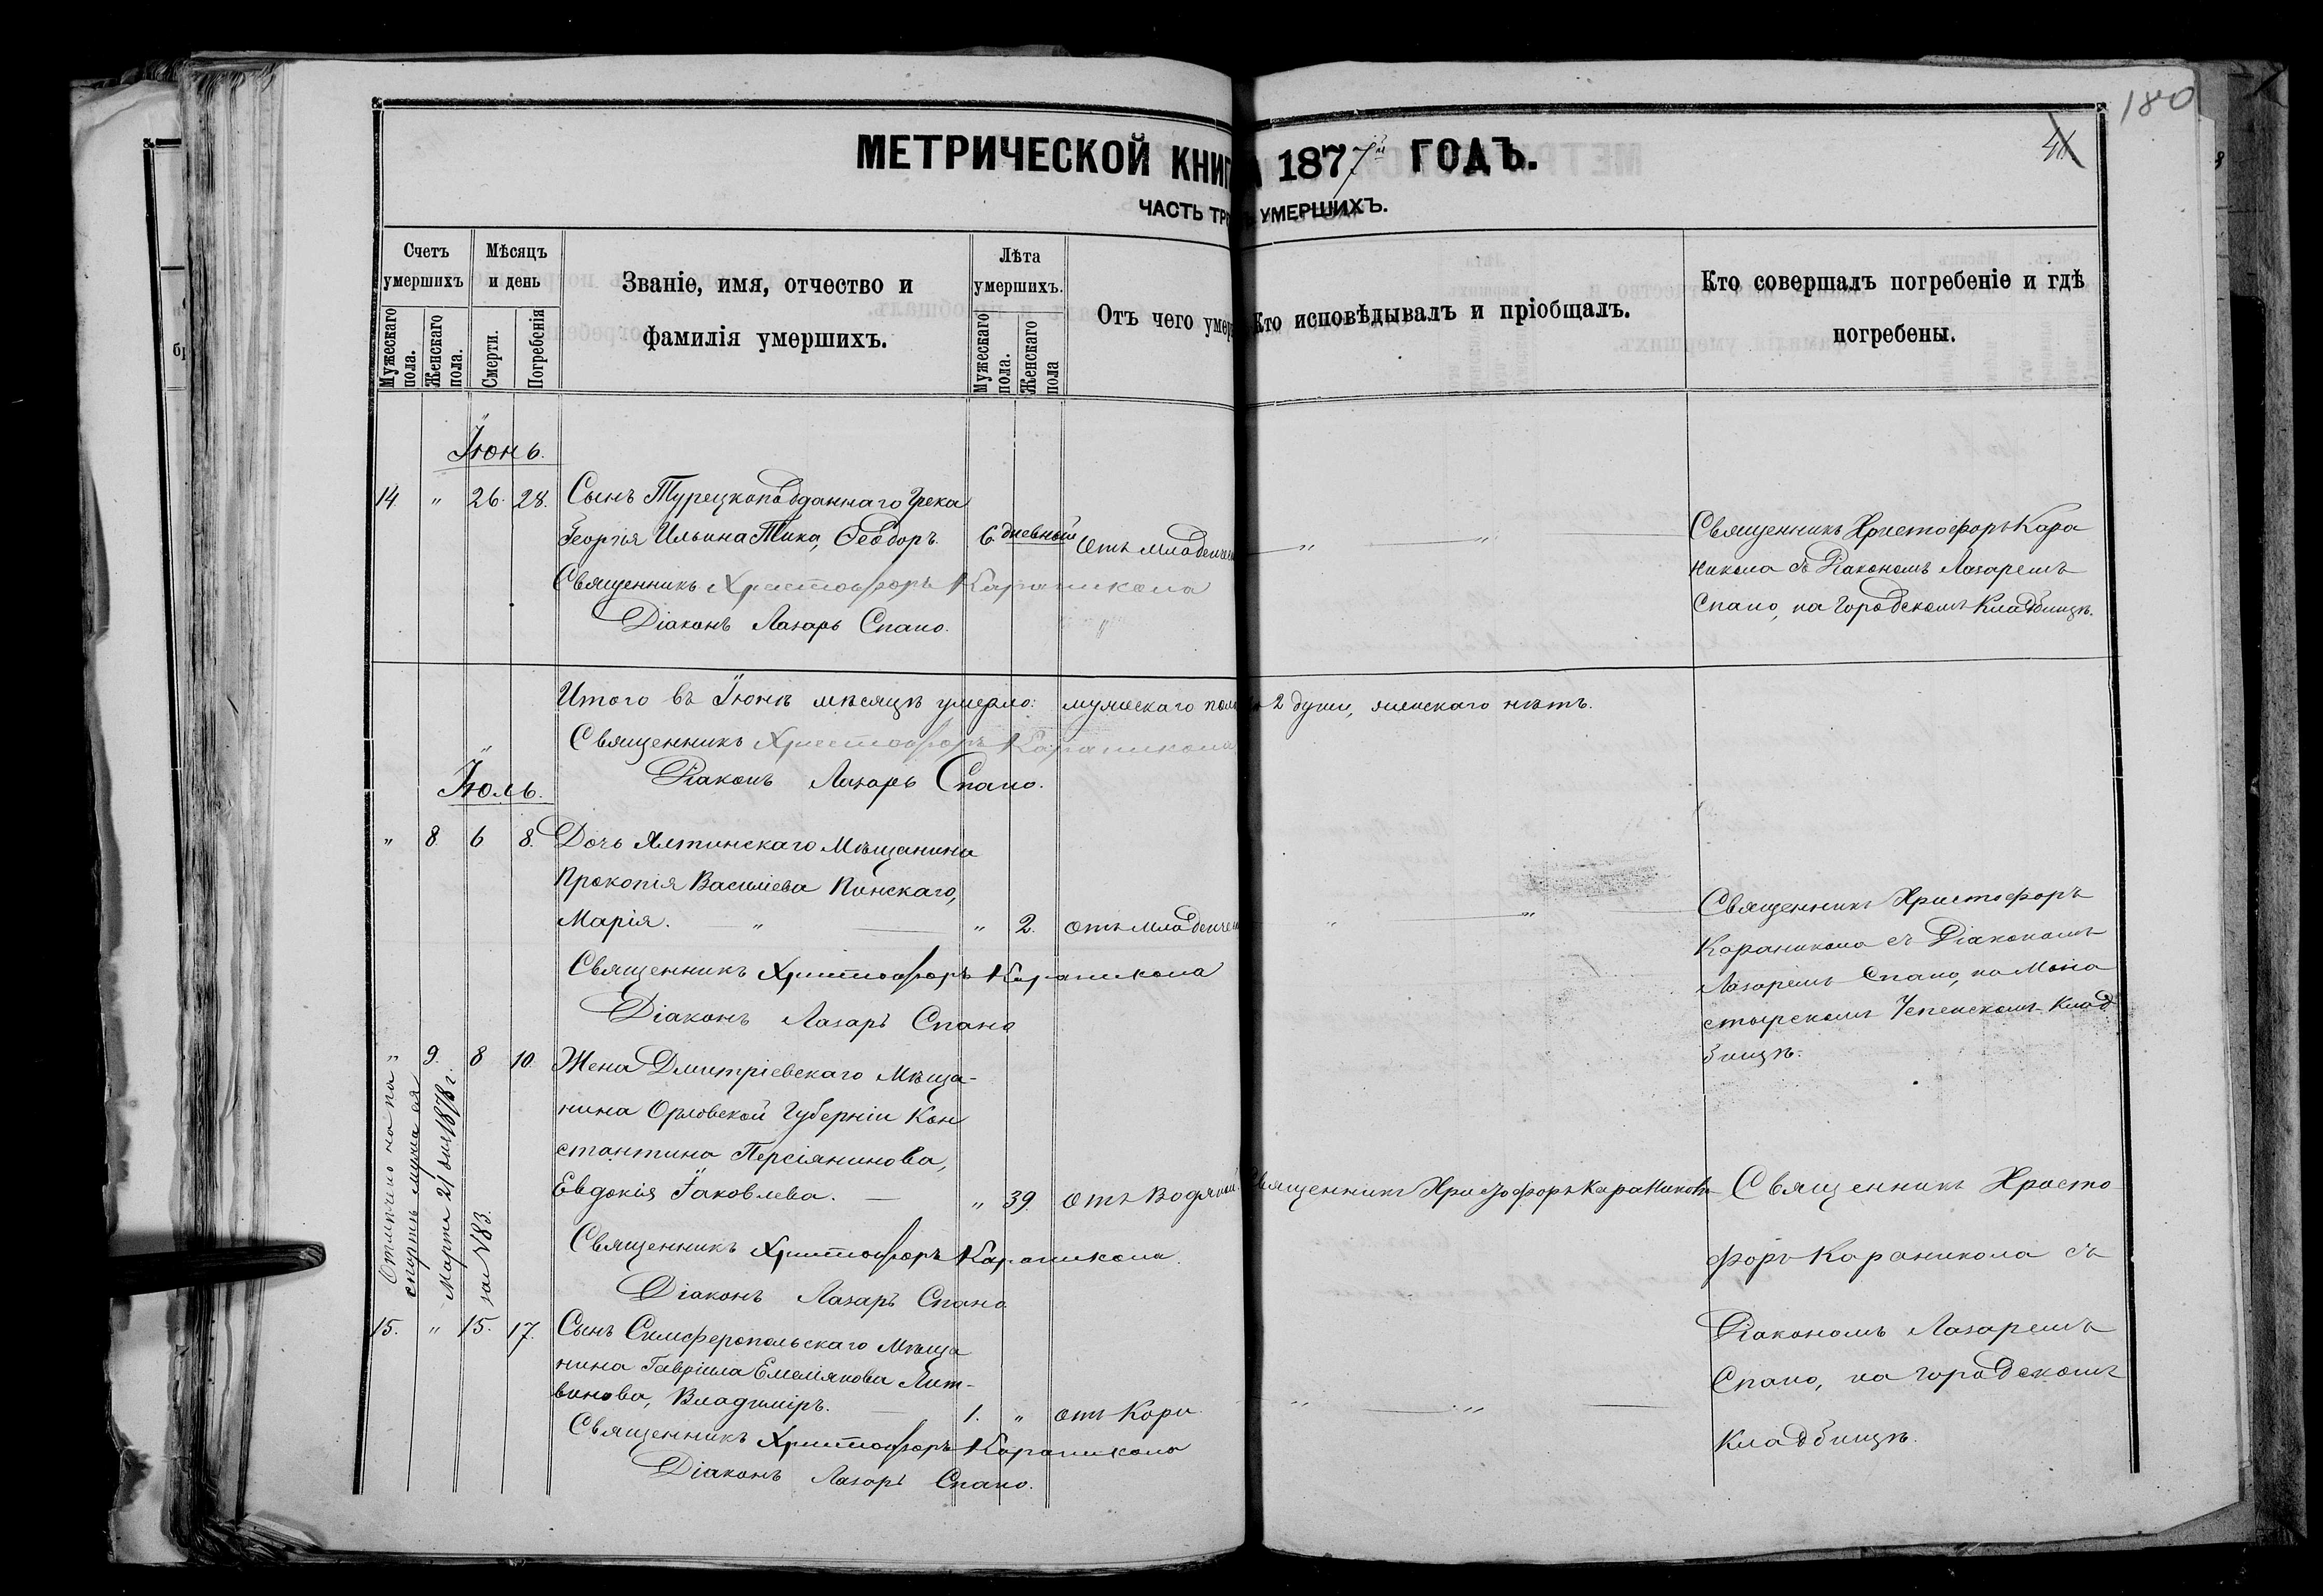 180
41
МЕТРИЧЕСКОЙ КНИГ 1877й ГОДЪ.
ЧАСТЬ ТР УМЕРШИХЪ.
Счетъ умершихъ
Мужескаго пола.
Женскаго пола.
Мѣсяцъ и день
Смерти.
Погребенія
Званіе, имя, отчество и
фамилія умершихъ.
Лѣта умершихъ.
Мужескаго пола.
Женскаго пола
Отъ чего умер
Кто исповѣдывалъ и пріобщалъ.
Кто совершалъ погребеніе и гдѣ
погребены.
Іюнь.
14. " 26. 28. Сынъ Турецкоподданнаго Грека
Георгія Ильина Тика, Ѳеодоръ. 6 дневный Отъ младенче " "
Священникъ Христофоръ Караникола
Діаконъ Лазарь Спано.
Священникъ Христофоръ Кара
никола съ Діакономъ Лазаремъ
Спано, на Городскомъ Кладбищѣ.
Итого въ Іюнѣ мѣсяцѣ умерло: мужескаго пола 2 души, женскаго нѣтъ.
Священникъ Христофоръ Караникола
Діаконъ Лазарь Спано.
Іюль.
" 8. 6 8. Дочь Ялтинскаго Мѣщанина
Прокопія Василіева Пинскаго,
Марія. " " 2. отъ младенче " "
Священникъ Христофоръ Караникола
Діаконъ Лазарь Спано
Священникъ Христофоръ
Караникола съ Діакономъ
Лазаремъ Спано, на Мона
стырскомъ Успенскомъ Клад
бищѣ.
" 9. 8 10. Жена Дмитріевскаго Мѣща-
нина Орловской Губерніи Кон
стантина Персіянинова,
Евдокія Іаковлева. " 39. отъ Водяной Священникъ Христофоръ Караникола
Священникъ Христофоръ Караникола.
Діаконъ Лазарь Спано
Отмѣчено на па
спортѣ мужа ея
Марта 21 дня 1878 г.
за №83.
Священникъ Христо
форъ Караникола съ
Діакономъ Лазаремъ
Спано, на городскомъ
Кладбищѣ.
15. " 15. 17. Сынъ Симферопольскаго Мѣща
нина Гавріила Емеліянова Лит-
винова, Владиміръ. 1. " отъ Кори " "
Священникъ Христофоръ Караникола
Діаконъ Лазарь Спано.